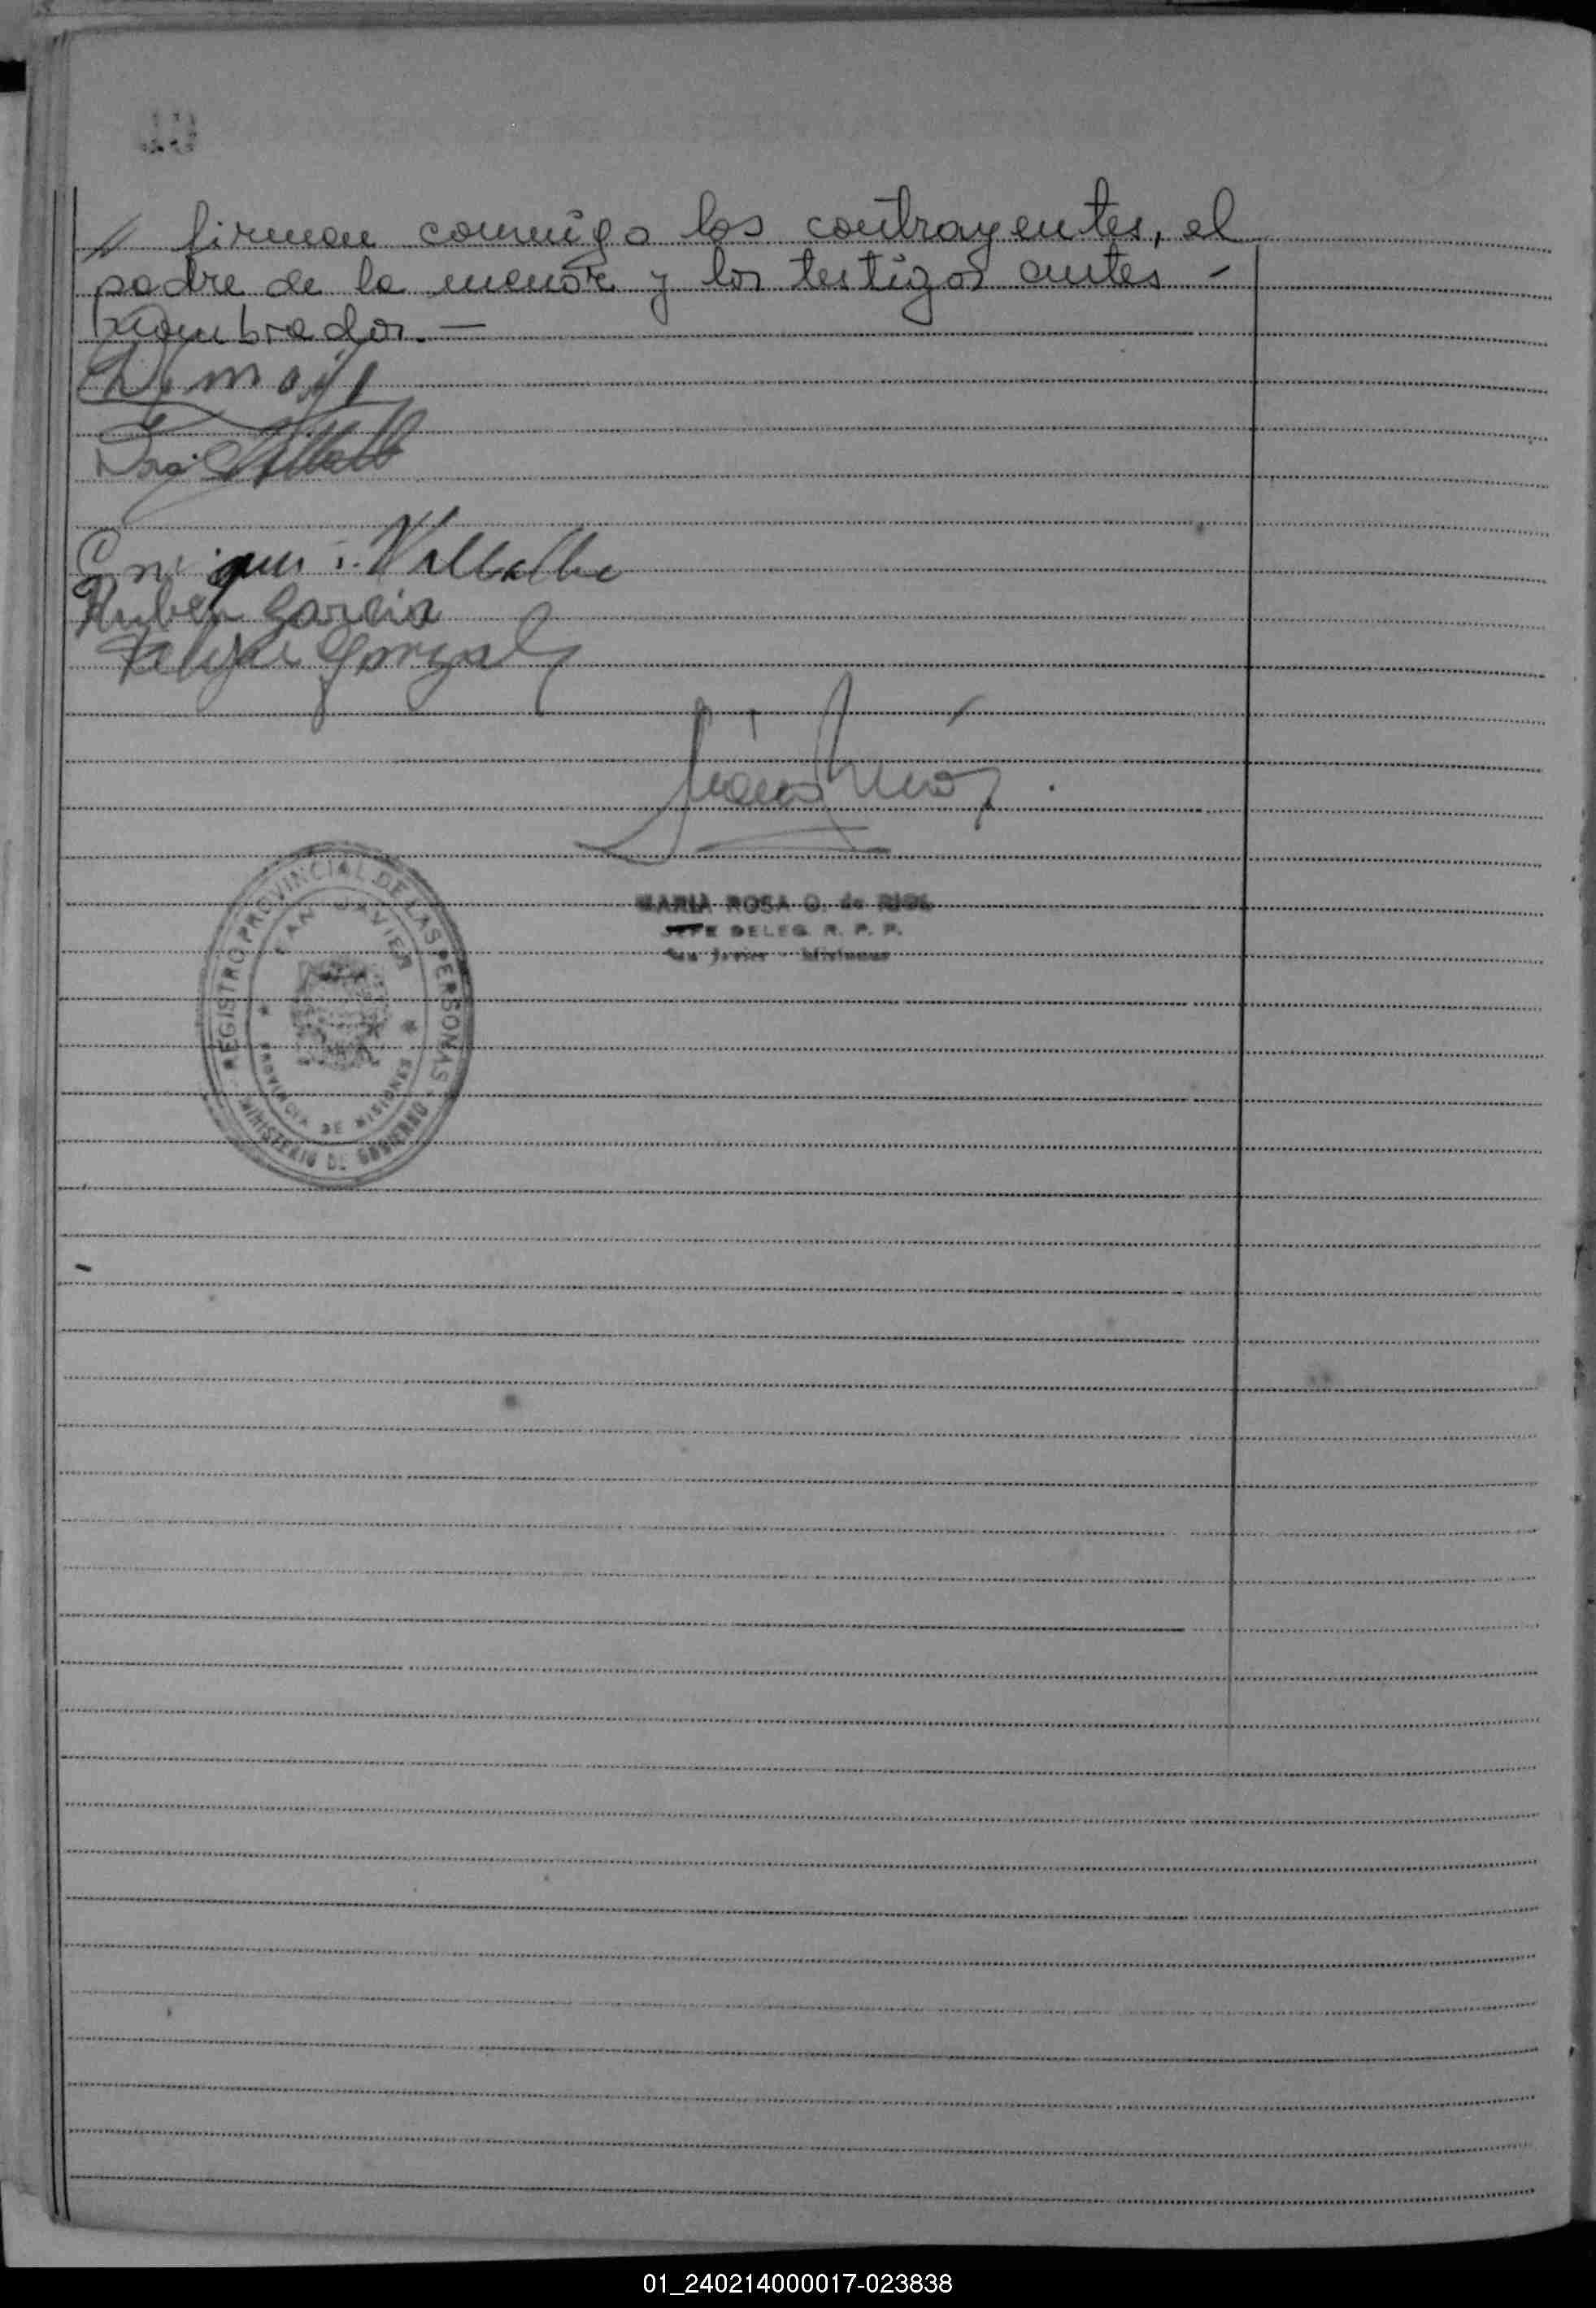 // firman conmigo los contrayentes, el
padre de la menor y los testigos antes -
nombrados. —
Enrique Villalba
Ruben Garcia
Felipe Gonzalez
MARIA ROSA O. de RIOS
JEFE DELEG. R. P. P.
San Javier - Misiones
REGISTRO PROVINCIAL DE LAS PERSONAS
SAN JAVIER
PROVINCIA DE MISIONES
MINISTERIO DE GOBIERNO
01_240214000017-023838